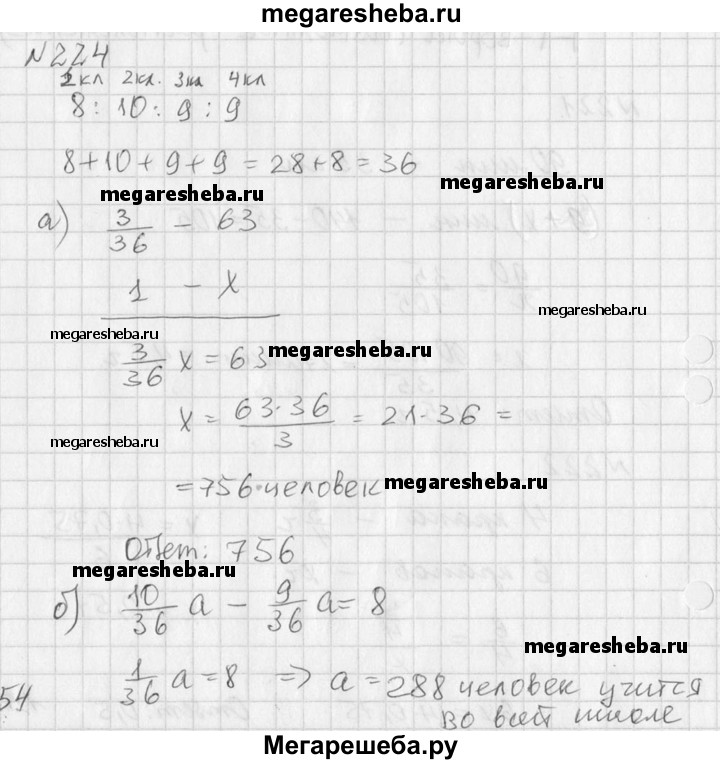 megaresheba.ru
№224
1кл 2кл. 3кл 4кл
8 : 10 : 9 : 9
8+10+9+9 = 28+8 = 36
megaresheba.ru megaresheba.ru
а) 3/36 – 63
1 – x
megaresheba.ru megaresheba.ru
3/36 x = 63 megaresheba.ru
x = 63·36/3 = 21·36 =
megaresheba.ru
= 756 человек megaresheba.ru
Ответ: 756
megaresheba.ru
б) 10/36 a – 9/36 a = 8
megaresheba.ru
54 1/36 a = 8 => a = 288 человек учится
во всей школе
Мегарешеба.ру